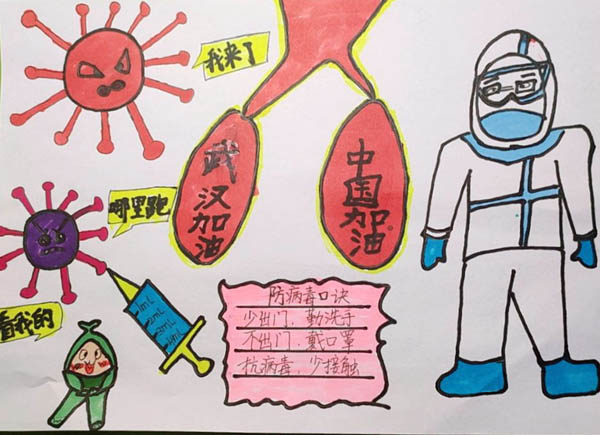 我来了
哪里跑
看我的
武汉加油
中国加油
1mL
2mL
3mL
4mL
防病毒口诀
少出门，勤洗手
不出门，戴口罩
抗病毒，少接触